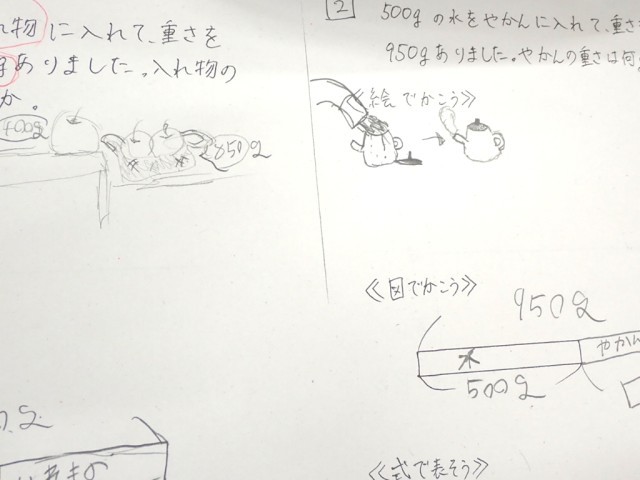 れ物に入れて、重さを
gありました。入れ物の
か。
400g
850g
いれもの
2
500gの水をやかんに入れて、重さ
950gありました。やかんの重さは何
≪絵でかこう≫
≪図でかこう≫
950g
水
やかん
500g
≪式で表そう≫